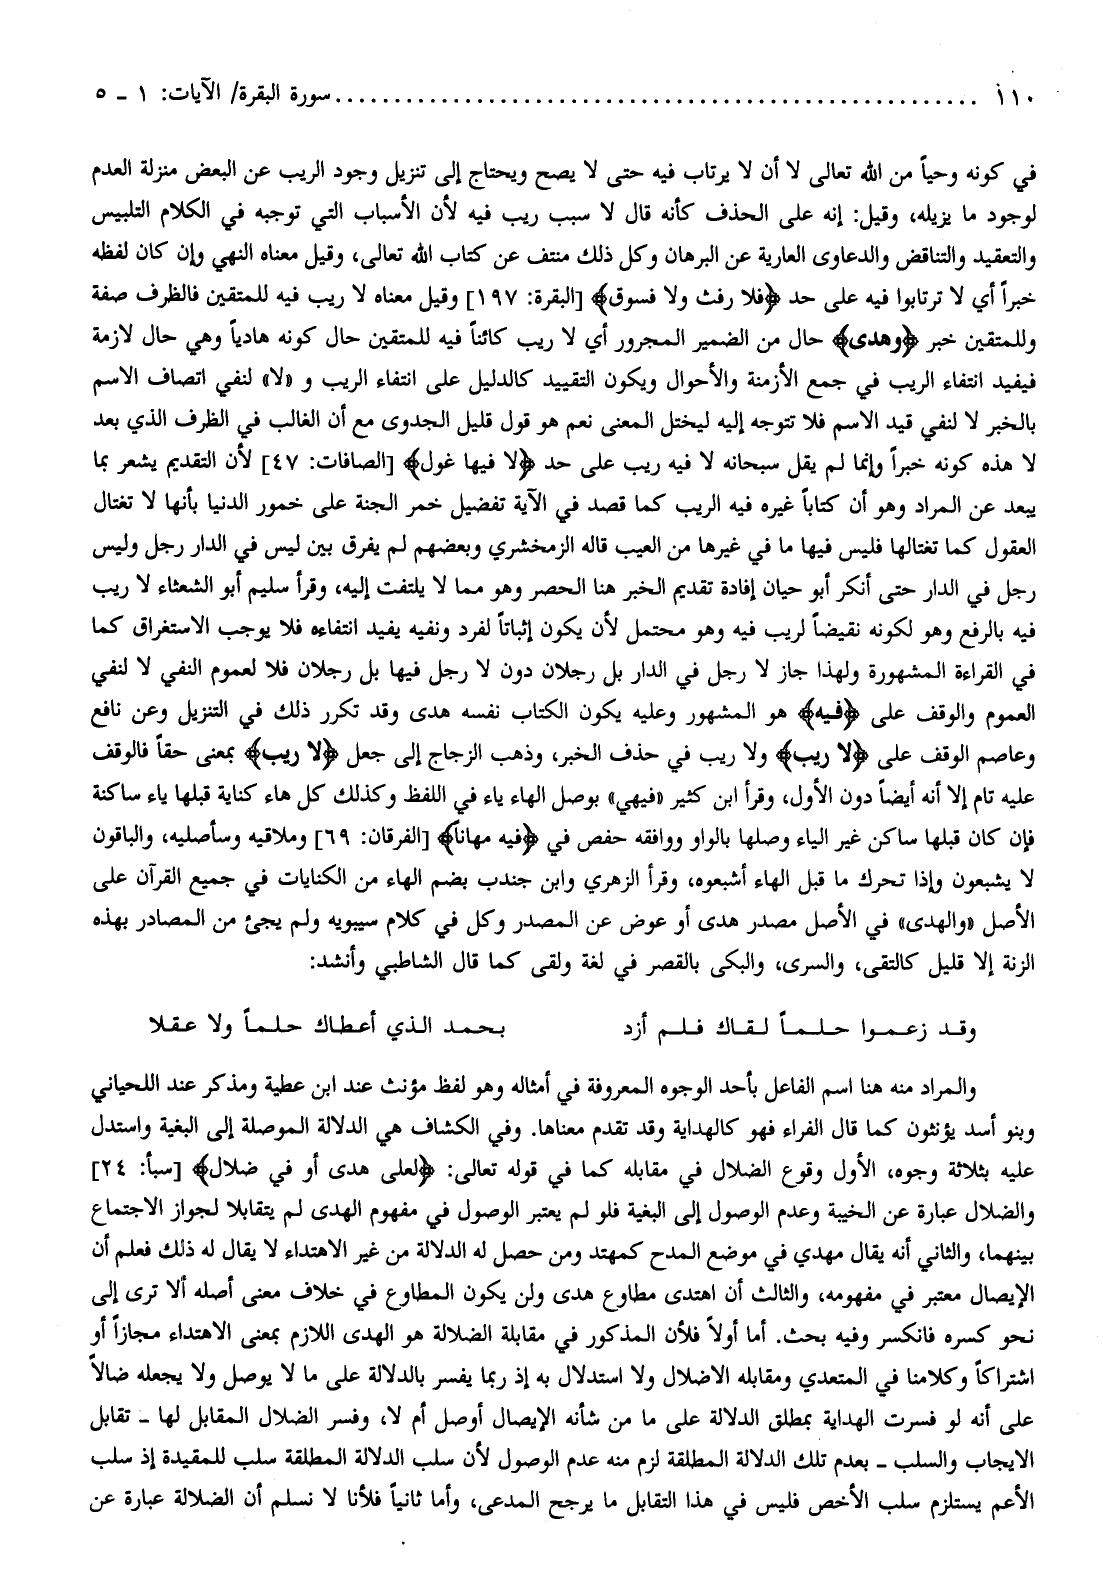 ١١٠ ........................................................ سورة البقرة/ الآيات: ١ ـ ٥
في كونه وحياً من الله تعالى لا أن لا يرتاب فيه حتى لا يصح ويحتاج إلى تنزيل وجود الريب عن البعض منزلة العدم
لوجود ما يزيله، وقيل: إنه على الحذف كأنه قال لا سبب ريب فيه لأن الأسباب التي توجبه في الكلام التلبيس
والتعقيد والتناقض والدعاوى العارية عن البرهان وكل ذلك منتف عن كتاب الله تعالى، وقيل معناه النهي وإن كان لفظه
خبراً أي لا ترتابوا فيه على حد ﴿فلا رفث ولا فسوق﴾ [البقرة: ١٩٧] وقيل معناه لا ريب فيه للمتقين فالظرف صفة
وللمتقين خبر ﴿وهدى﴾ حال من الضمير المجرور أي لا ريب كائناً فيه للمتقين حال كونه هادياً وهي حال لازمة
فيفيد انتفاء الريب في جمع الأزمنة والأحوال ويكون التقييد كالدليل على انتفاء الريب و «لا» لنفي اتصاف الاسم
بالخبر لا لنفي قيد الاسم فلا تتوجه إليه ليختل المعنى نعم هو قول قليل الجدوى مع أن الغالب في الظرف الذي بعد
لا هذه كونه خبراً وإنما لم يقل سبحانه لا فيه ريب على حد ﴿لا فيها غول﴾ [الصافات: ٤٧] لأن التقديم يشعر بما
يبعد عن المراد وهو أن كتاباً غيره فيه الريب كما قصد في الآية تفضيل خمر الجنة على خمور الدنيا بأنها لا تغتال
العقول كما تغتالها فليس فيها ما في غيرها من العيب قاله الزمخشري وبعضهم لم يفرق بين ليس في الدار رجل وليس
رجل في الدار حتى أنكر أبو حيان إفادة تقديم الخبر هنا الحصر وهو مما لا يلتفت إليه، وقرأ سليم أبو الشعثاء لا ريب
فيه بالرفع وهو لكونه نقيضاً لريب فيه وهو محتمل لأن يكون إثباتاً لفرد ونفيه يفيد انتفاءه فلا يوجب الاستغراق كما
في القراءة المشهورة ولهذا جاز لا رجل في الدار بل رجلان دون لا رجل فيها بل رجلان فلا لعموم النفي لا لنفي
العموم والوقف على ﴿فيه﴾ هو المشهور وعليه يكون الكتاب نفسه هدى وقد تكرر ذلك في التنزيل وعن نافع
وعاصم الوقف على ﴿لا ريب﴾ ولا ريب في حذف الخبر، وذهب الزجاج إلى جعل ﴿لا ريب﴾ بمعنى حقاً فالوقف
عليه تام إلا أنه أيضاً دون الأول، وقرأ ابن كثير «فيهي» بوصل الهاء ياء في اللفظ وكذلك كل هاء كناية قبلها ياء ساكنة
فإن كان قبلها ساكن غير الياء وصلها بالواو ووافقه حفص في ﴿فيه مهاناً﴾ [الفرقان: ٦٩] وملاقيه وسأصليه، والباقون
لا يشبعون وإذا تحرك ما قبل الهاء أشبعوه، وقرأ الزهري وابن جندب بضم الهاء من الكنايات في جميع القرآن على
الأصل «والهدى» في الأصل مصدر هدى أو عوض عن المصدر وكل في كلام سيبويه ولم يجئ من المصادر بهذه
الزنة إلا قليل كالتقى، والسرى، والبكى بالقصر في لغة ولقى كما قال الشاطبي وأنشد:
وقد زعموا حلماً لقاك فلم أزد بحمد الذي أعطاك حلماً ولا عقلا
والمراد منه هنا اسم الفاعل بأحد الوجوه المعروفة في أمثاله وهو لفظ مؤنث عند ابن عطية ومذكر عند اللحياني
وبنو أسد يؤنثون كما قال الفراء فهو كالهداية وقد تقدم معناها. وفي الكشاف هي الدلالة الموصلة إلى البغية واستدل
عليه بثلاثة وجوه، الأول وقوع الضلال في مقابله كما في قوله تعالى: ﴿لعلى هدى أو في ضلال﴾ [سبأ: ٢٤]
والضلال عبارة عن الخيبة وعدم الوصول إلى البغية فلو لم يعتبر الوصول في مفهوم الهدى لم يتقابلا لجواز الاجتماع
بينهما، والثاني أنه يقال مهدي في موضع المدح كمهتد ومن حصل له الدلالة من غير الاهتداء لا يقال له ذلك فعلم أن
الإيصال معتبر في مفهومه، والثالث أن اهتدى مطاوع هدى ولن يكون المطاوع في خلاف معنى أصله ألا ترى إلى
نحو كسره فانكسر وفيه بحث. أما أولاً فلأن المذكور في مقابلة الضلالة هو الهدى اللازم بمعنى الاهتداء مجازاً أو
اشتراكاً وكلامنا في المتعدي ومقابله الاضلال ولا استدلال به إذ ربما يفسر بالدلالة على ما لا يوصل ولا يجعله ضالاً
على أنه لو فسرت الهداية بمطلق الدلالة على ما من شأنه الإيصال أوصل أم لا، وفسر الضلال المقابل لها ـ تقابل
الايجاب والسلب ـ بعدم تلك الدلالة المطلقة لزم منه عدم الوصول لأن سلب الدلالة المطلقة سلب للمقيدة إذ سلب
الأعم يستلزم سلب الأخص فليس في هذا التقابل ما يرجح المدعى، وأما ثانياً فلأنا لا نسلم أن الضلالة عبارة عن